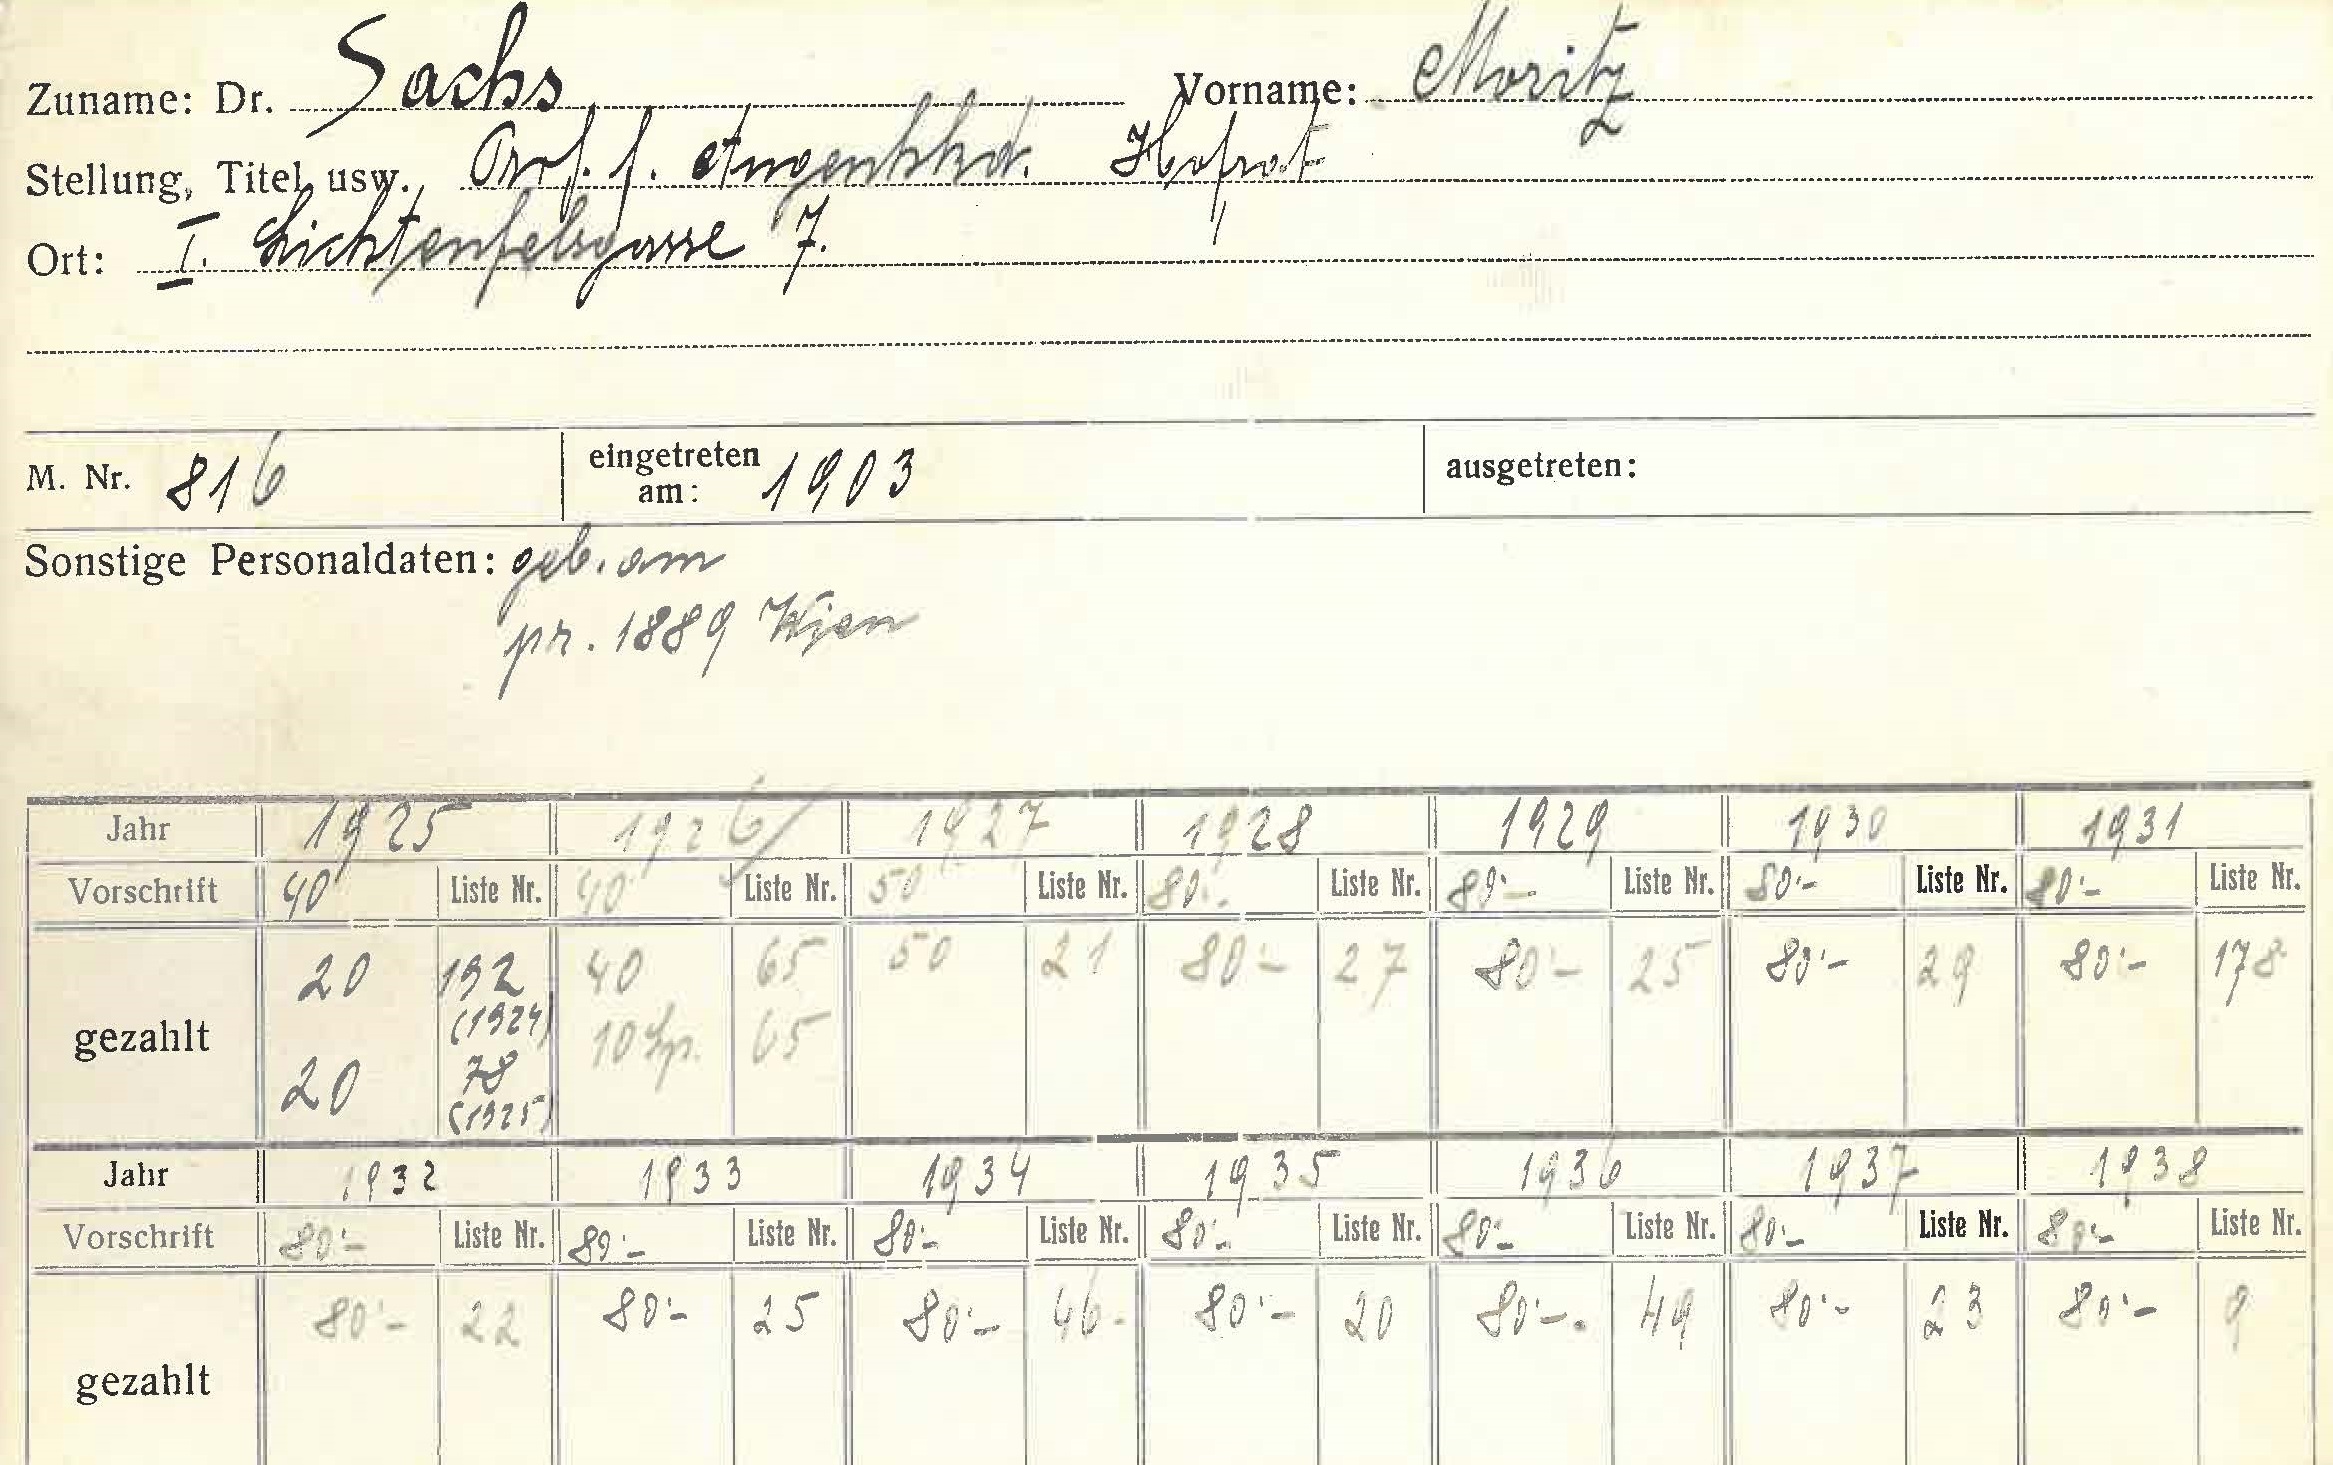 Zuname: Dr. Sachs Vorname: Moritz
Stellung, Titel usw. Prof. f. Augenhkd. Hofrat
Ort: I. Lichtenfelsgasse 7.
M. Nr. 816 eingetreten am: 1903 ausgetreten:
Sonstige Personaldaten: geb. am
pr. 1889 Wien
Jahr 1925 1926 1927 1928 1929 1930 1931
Vorschrift 40 Liste Nr. 40 Liste Nr. 50 Liste Nr. 80.- Liste Nr. 80.- Liste Nr. 80.- Liste Nr. 80.- Liste Nr.
gezahlt 20 192 40 65 50 21 80.- 27 80.- 25 80.- 29 80.- 178
(1924) 10 Sp. 65
20 78
(1925)
Jahr 1932 1933 1934 1935 1936 1937 1938
Vorschrift 80.- Liste Nr. 80.- Liste Nr. 80.- Liste Nr. 80.- Liste Nr. 80.- Liste Nr. 80.- Liste Nr. 80.- Liste Nr.
gezahlt 80.- 22 80.- 25 80.- 46 80.- 20 80.- 49 80.- 23 80.- 9